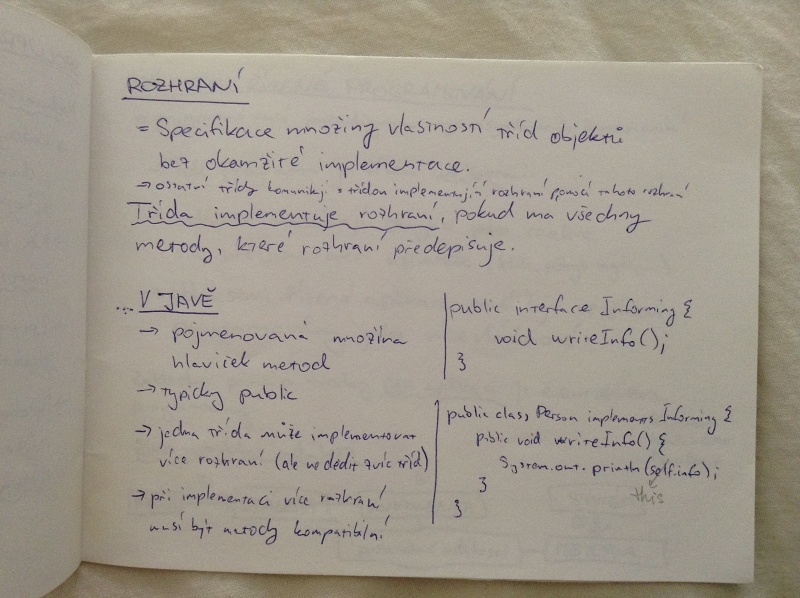 ROZHRANÍ
= Specifikace množiny vlastností tříd objektů
bez okamžité implementace.
→ ostatní třídy komunikj s třídou implementující rozhraní pomocí tohoto rozhraní
Třída implementuje rozhraní, pokud ma všechny
metody, které rozhraní předepisuje.
... V JAVĚ
→ pojmenovaná množina
hlaviček metod
→ typicky public
→ jedna třída může implementovat
více rozhraní (ale ne dědit z víc tříd)
→ při implementaci více rozhraní
musí být metody kompatibilní
public interface Informing {
void writeInfo();
}
public class Person implements Informing {
public void writeInfo() {
System.out.println(self.info);
this
}
}